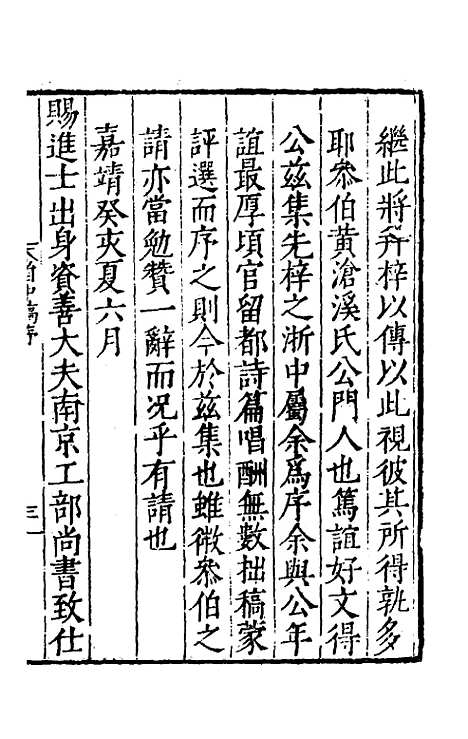 繼此將并梓以傳以此視彼其所得孰多
耶叅伯黃滄溪氏公門人也篤誼好文得
公兹集先梓之浙中屬余爲序余與公年
誼最厚頃官留都詩篇唱酬無數拙稿蒙
評選而序之則今於兹集也雖微叅伯之
請亦當勉贊一辭而况乎有請也
嘉靖癸亥夏六月
賜進士出身資善大夫南京工部尚書致仕
三